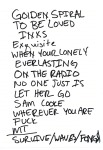 GOLDEN SPIRAL
TO BE LOVED
INXS
Exquisite
WHEN YOUR LONELY
EVERLASTING
ON THE RADIO
NO ONE JUST IS
LET HER GO
SAM COOKE
WHEREVER YOU ARE
FUCK
MT
SURVIVE/WAVES/